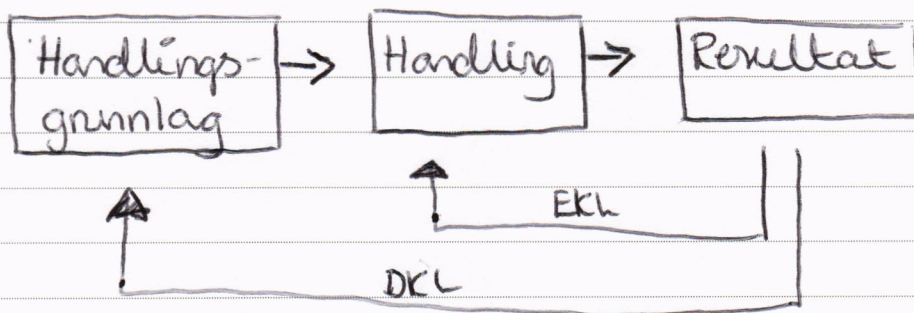 Handlings-
grunnlag
Handling
Resultat
EKL
DKL